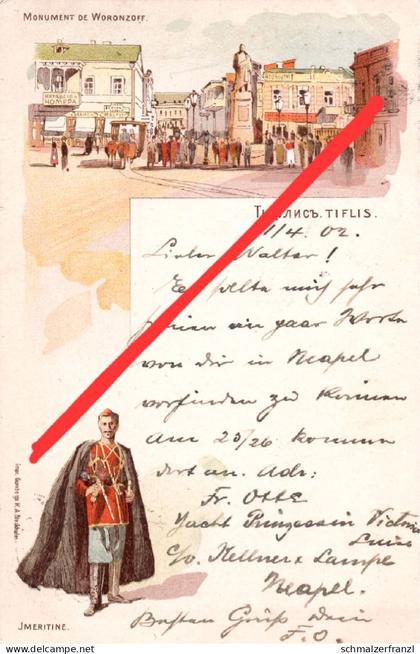 MONUMENT DE WORONZOFF.
НОМЕРА
ТИФЛИСЪ. TIFLIS.
1/4. 02.
Lieber Walter!
Es sollte mich sehr
freuen ein paar Worte
von dir in Neapel
vorfinden zu können
Am 25/26 komme
dort an. Adr:
Fr. Otte
Yacht Prinzessin Victoria
Luise
c/o Kellner & Lampe
Neapel.
Besten Gruß Dein
F. O.
JMERITINE.
www.schmalzerfamel.com